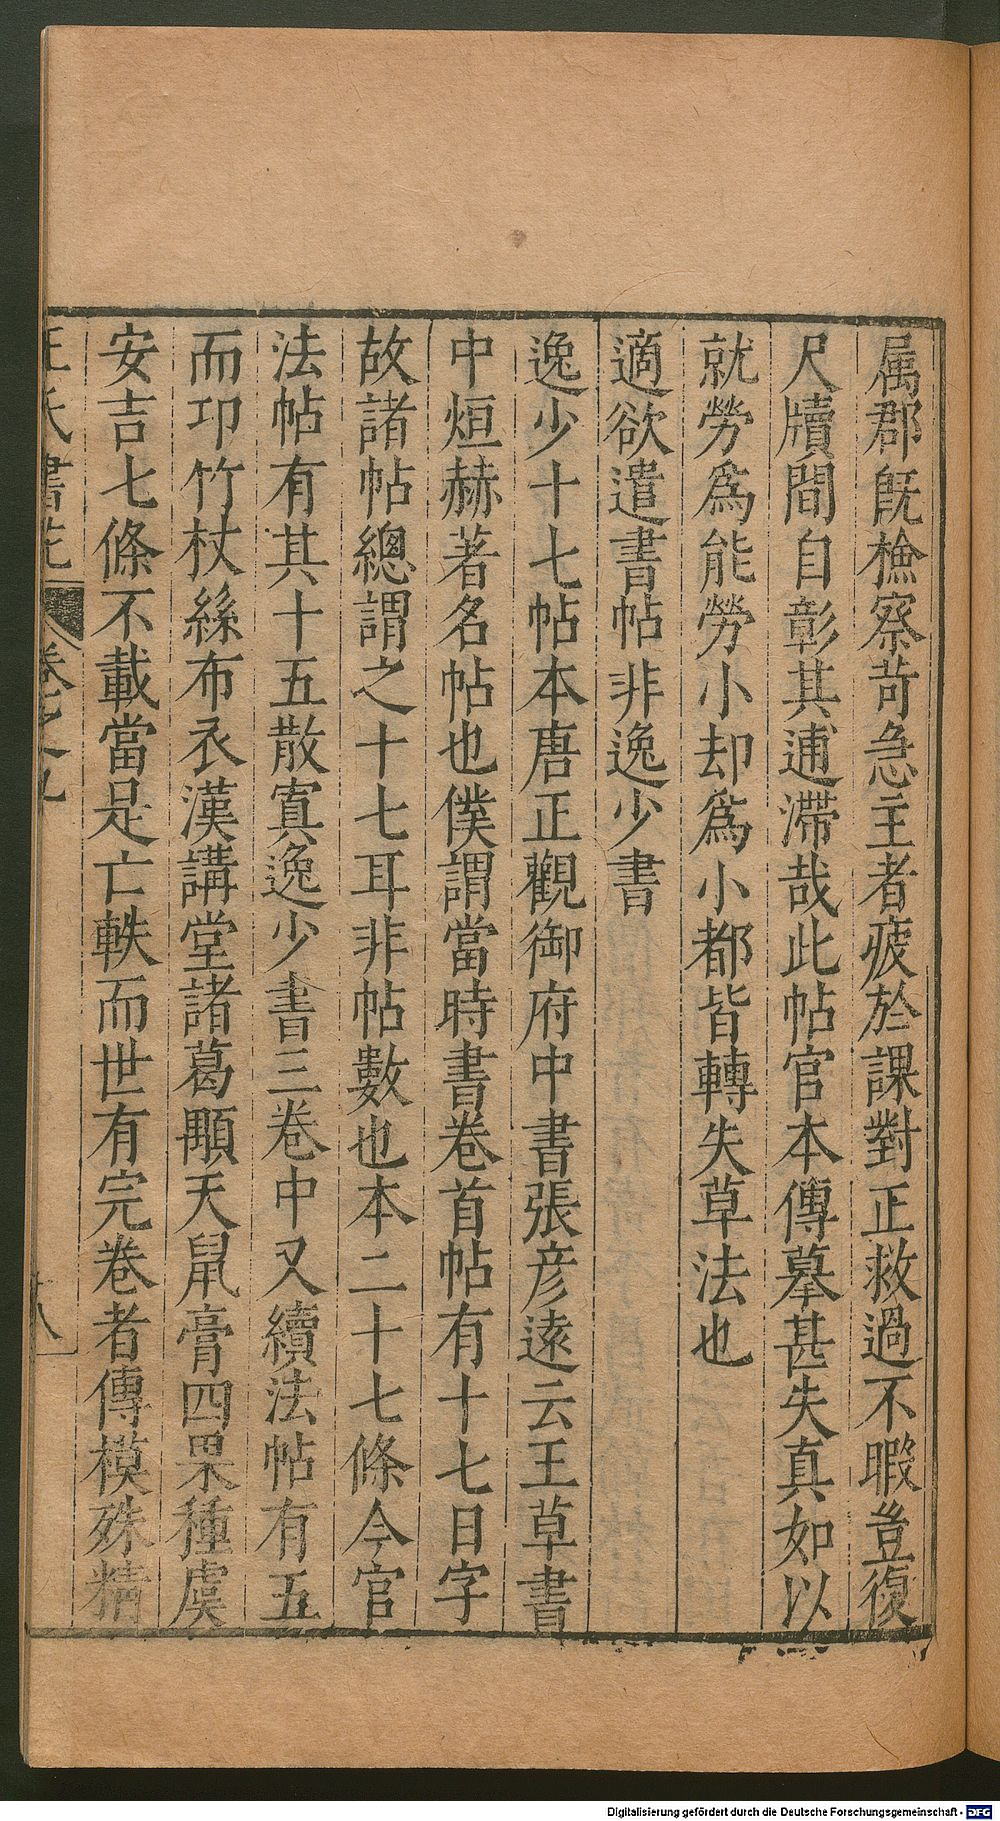 属郡旣檢察苛急主者疲於課對正救過不暇豈復
尺牘間自彰其逋滯哉此帖官本傳摹甚失真如以
就勞爲能勞小却爲小都皆轉失草法也
適欲遣書帖非逸少書
逸少十七帖本唐正觀御府中書張彦遠云王草書
中烜赫著名帖也僕謂當時書卷首帖有十七日字
故諸帖總謂之十七耳非帖數也本二十七條今官
法帖有其十五散寘逸少書三卷中又續法帖有五
而卭竹杖絲布衣漢講堂諸葛顒天鼠膏四果種虞
安吉七條不載當是亡軼而世有完卷者傳模殊精
王氏書苑 卷之九 十八
Digitalisierung gefördert durch die Deutsche Forschungsgemeinschaft - DFG